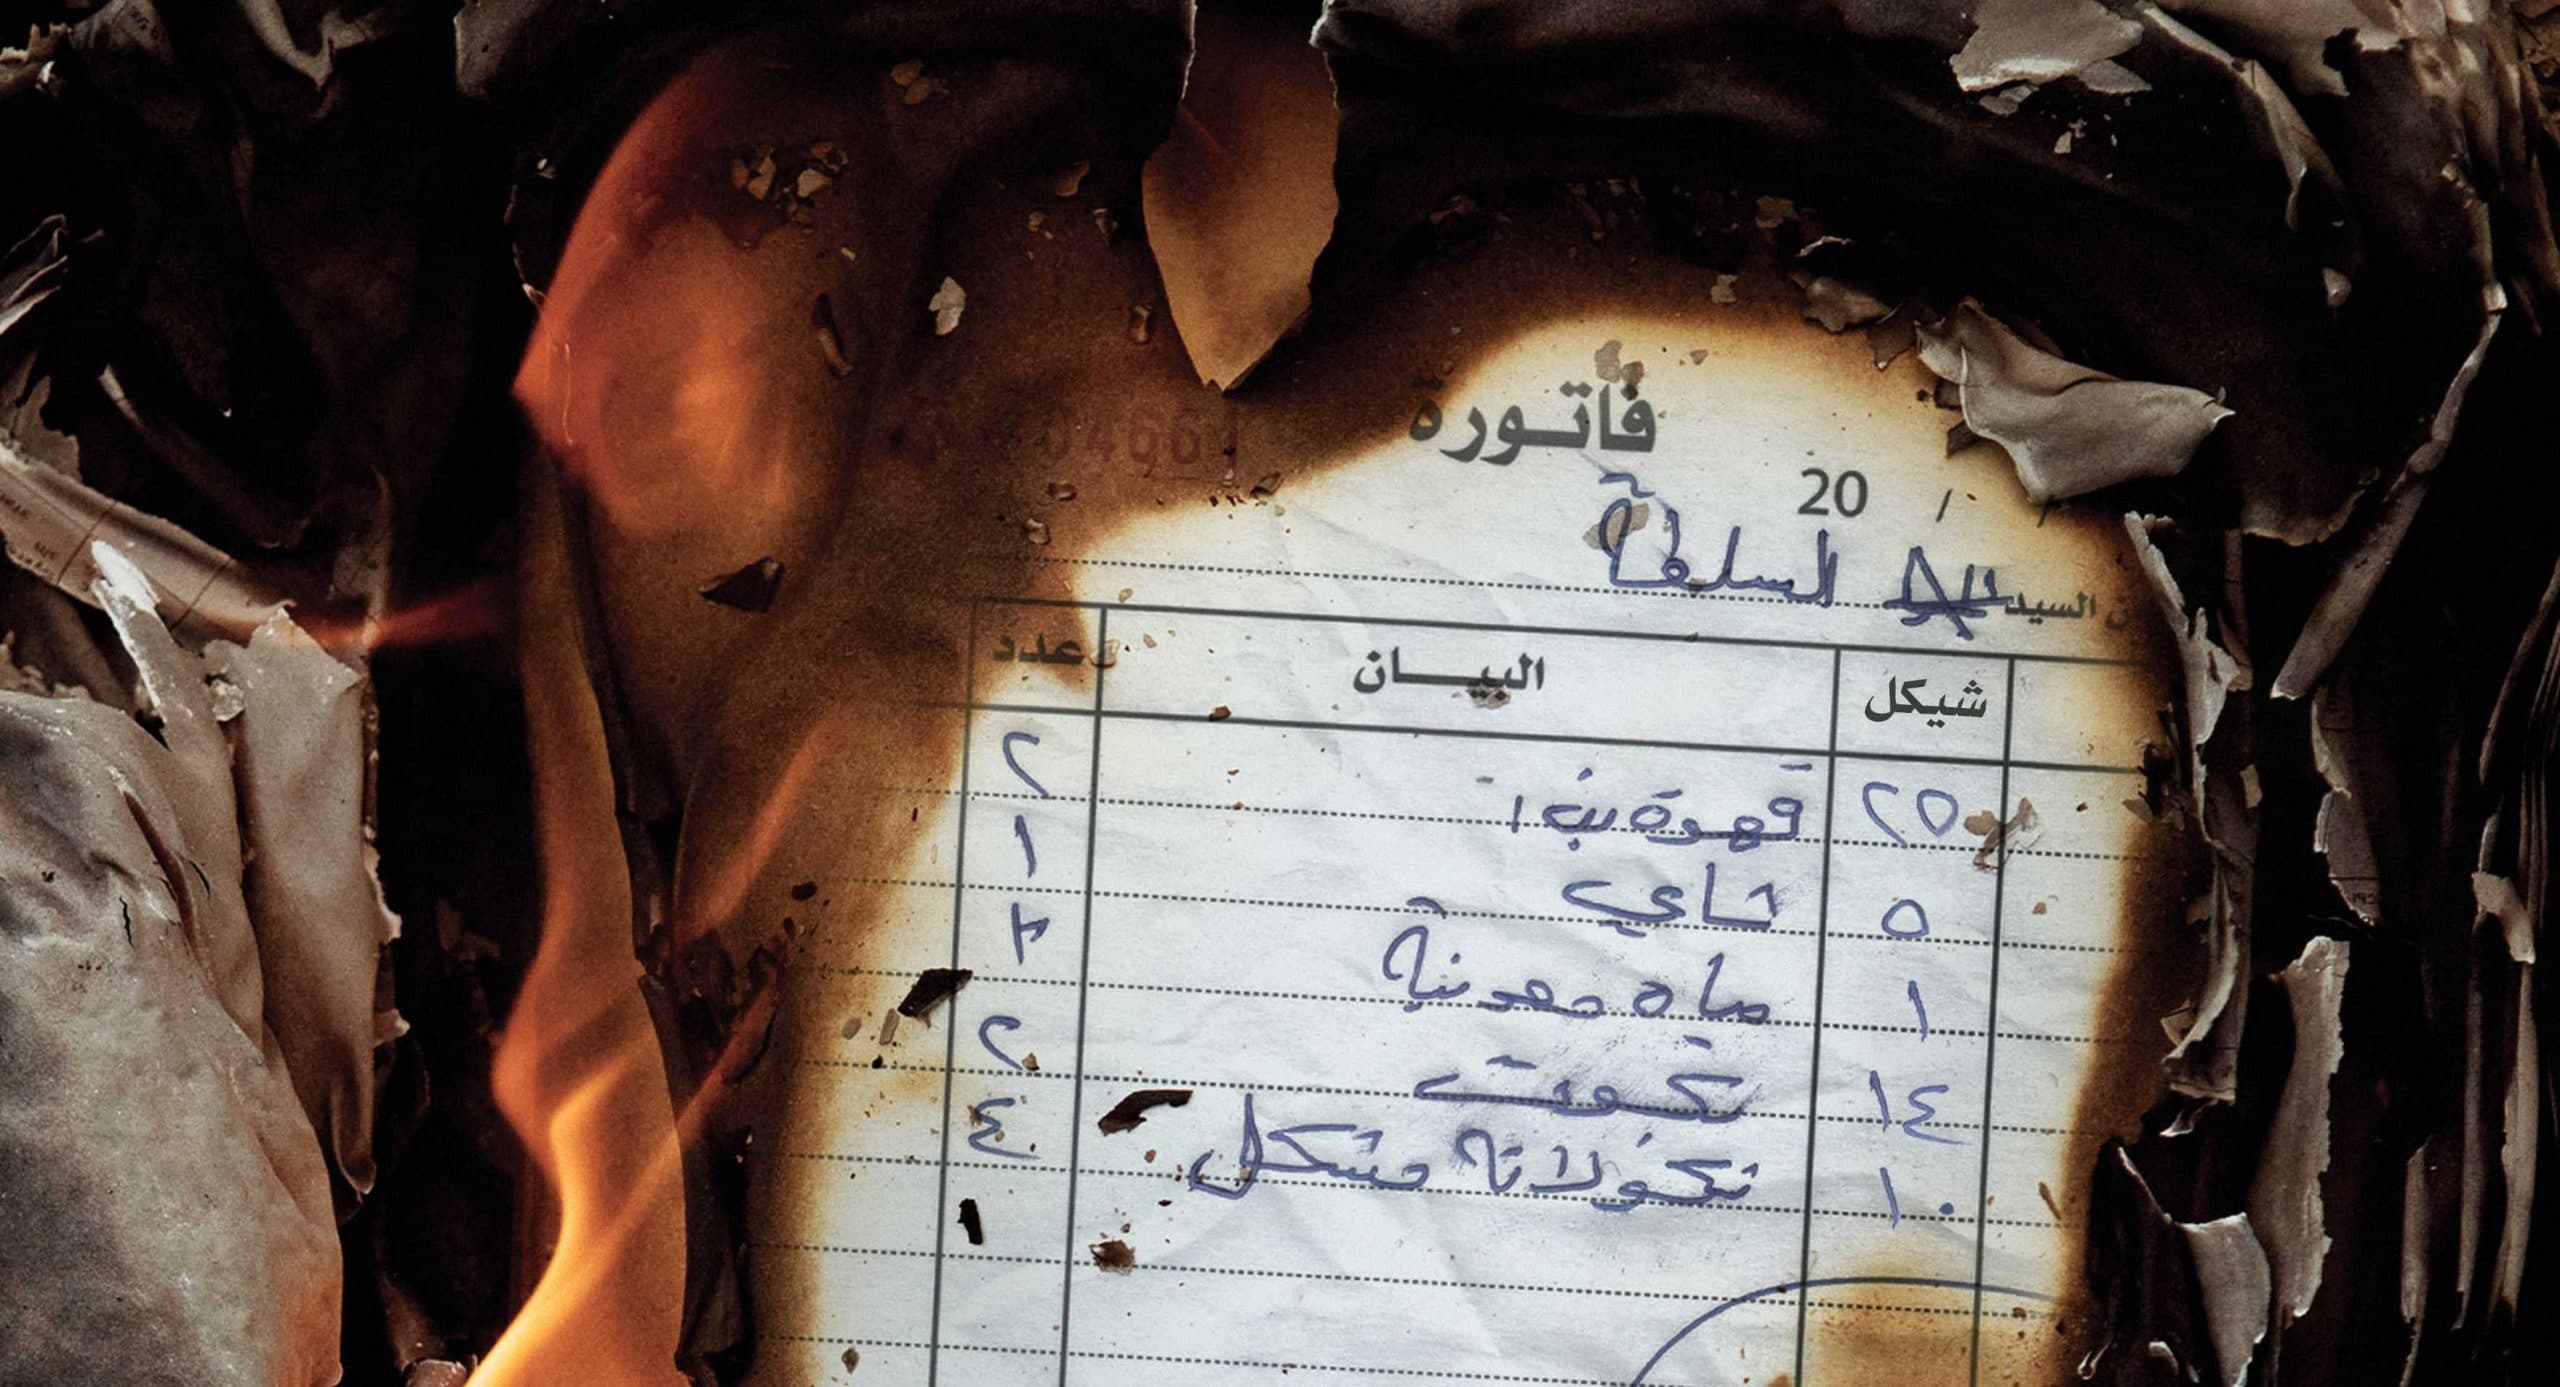 فاتورة
04661
20 / /
السيد السلطة
شيكل البيـــان عدد
٢٥ قهوة بن ٢
٥ شاي ١
١ مياه معدنية ٣
١٤ بسكوت ٢
١٠ شكولاته مشكل ٤